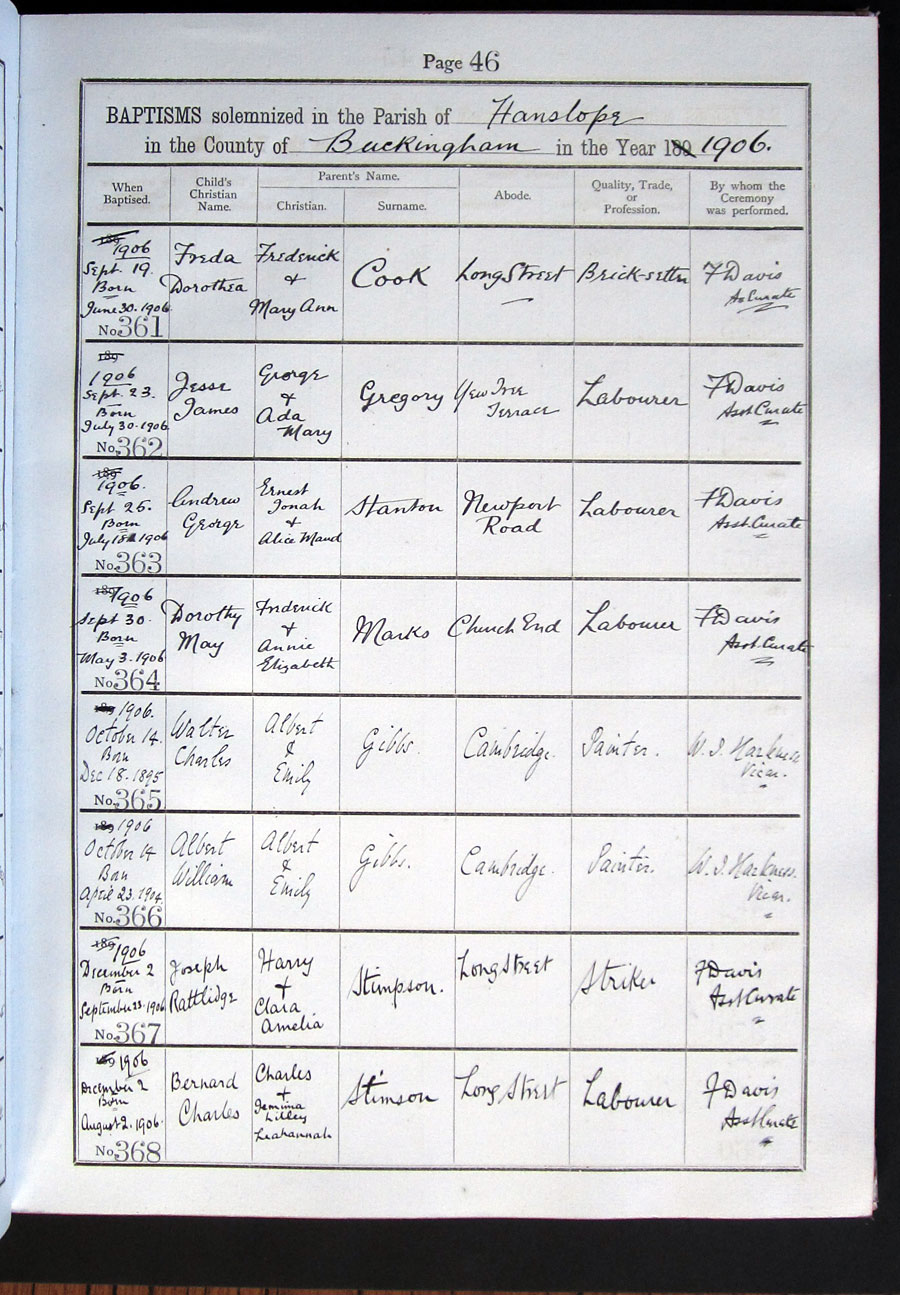 Page 46
BAPTISMS solemnized in the Parish of Hanslope
in the County of Buckingham in the Year 189 1906.
When Baptised.
Child's Christian Name.
Parent's Name.
Christian.
Surname.
Abode.
Quality, Trade, or Profession.
By whom the Ceremony was performed.
189
1906
Sept. 19.
Born
June 30. 1906.
No. 361
Freda
Dorothea
Frederick
&
Mary Ann
Cook
Long Street
Brick-setter
F Davis
As Curate
189
1906
Sept. 23.
Born
July 30. 1906
No. 362
Jesse
James
George
&
Ada
Mary
Gregory
Yew Tree
Terrace
Labourer
F Davis
Asst Curate
189
1906.
Sept 25.
Born
1906
No. 363
Andrew
George
Ernest
Jonah
&
Alice Maud
Stanton
Newport
Road
Labourer
F Davis
Asst Curate
189
1906
Sept 30.
Born
May 3. 1906
No. 364
Dorothy
May
Frederick
&
Annie
Elizabeth
Marks
Church End
Labourer
F Davis
Asst Curate
189 1906.
October 14.
Born
Dec 18. 1895
No. 365
Walter
Charles
Albert
&
Emily
Gibbs.
Cambridge.
Painter.
W. J. Harkness
Vicar.
189 1906
October 14
Born
April 23. 1904.
No. 366
Albert
William
Albert
&
Emily
Gibbs.
Cambridge.
Painter.
W. J. Harkness.
Vicar.
189
1906
December 2
Born
September 23. 1906
No. 367
Joseph
Rattlidge
Harry
&
Clara
Amelia
Stimpson.
Long Street
Striker
F Davis
Asst Curate
189 1906
December 2
Born
August 2. 1906.
No. 368
Bernard
Charles
Charles
&
Jemima
Lilley
Leahannah
Stimson
Long Street
Labourer
F Davis
Asst Curate